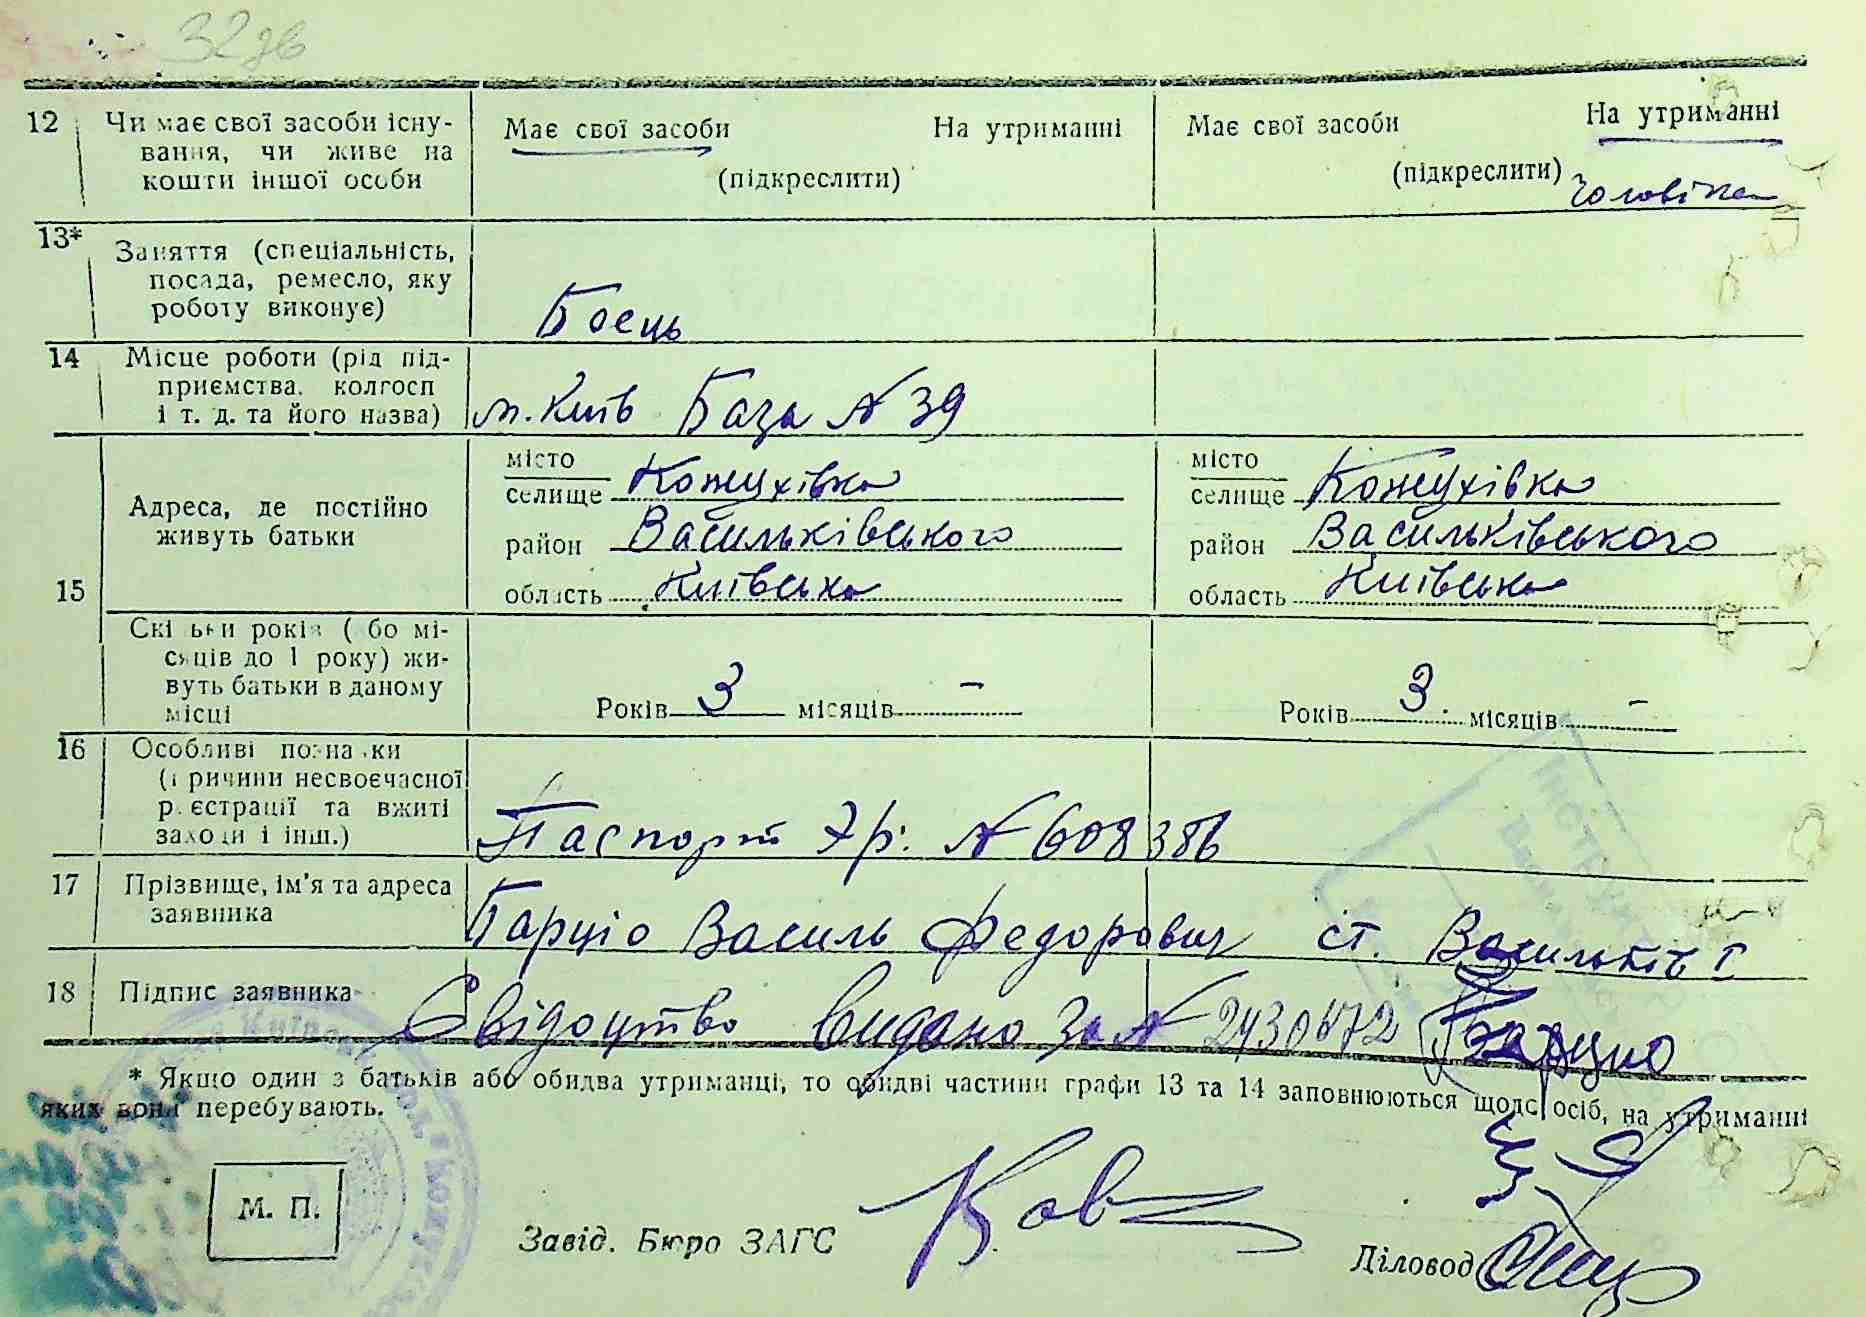 32 зв
12 Чи має свої засоби існу-
вання, чи живе на
кошти іншої особи
Має свої засоби На утриманні
(підкреслити)
Має свої засоби На утриманні
(підкреслити)
чоловіка
13* Заняття (спеціальність,
посада, ремесло, яку
роботу виконує)
Боєць
14 Місце роботи (рід під-
приємства, колгосп
і т. д. та його назва)
м. Київ База № 39
15 Адреса, де постійно
живуть батьки
місто
селище Кожухівка
район Васильківського
область Київська
місто
селище Кожухівка
район Васильківського
область Київська
Скільки років (або мі-
сяців до 1 року) жи-
вуть батьки в даному
місці
Років 3 місяців –
Років 3. місяців –
16 Особливі познаки
(причини несвоєчасної
реєстрації та вжиті
заходи і інш.)
Паспорт № 608386
17 Прізвище, ім'я та адреса
заявника
Барціо Василь Федорович ст. Васильків І
18 Підпис заявника
Свідоцтво видано за № 2430672
* Якщо один з батьків або обидва утриманці, то обидві частини графи 13 та 14 заповнюються щодо осіб, на утриманні
яких вони перебувають.
М. П.
Завід. Бюро ЗАГС
Діловод